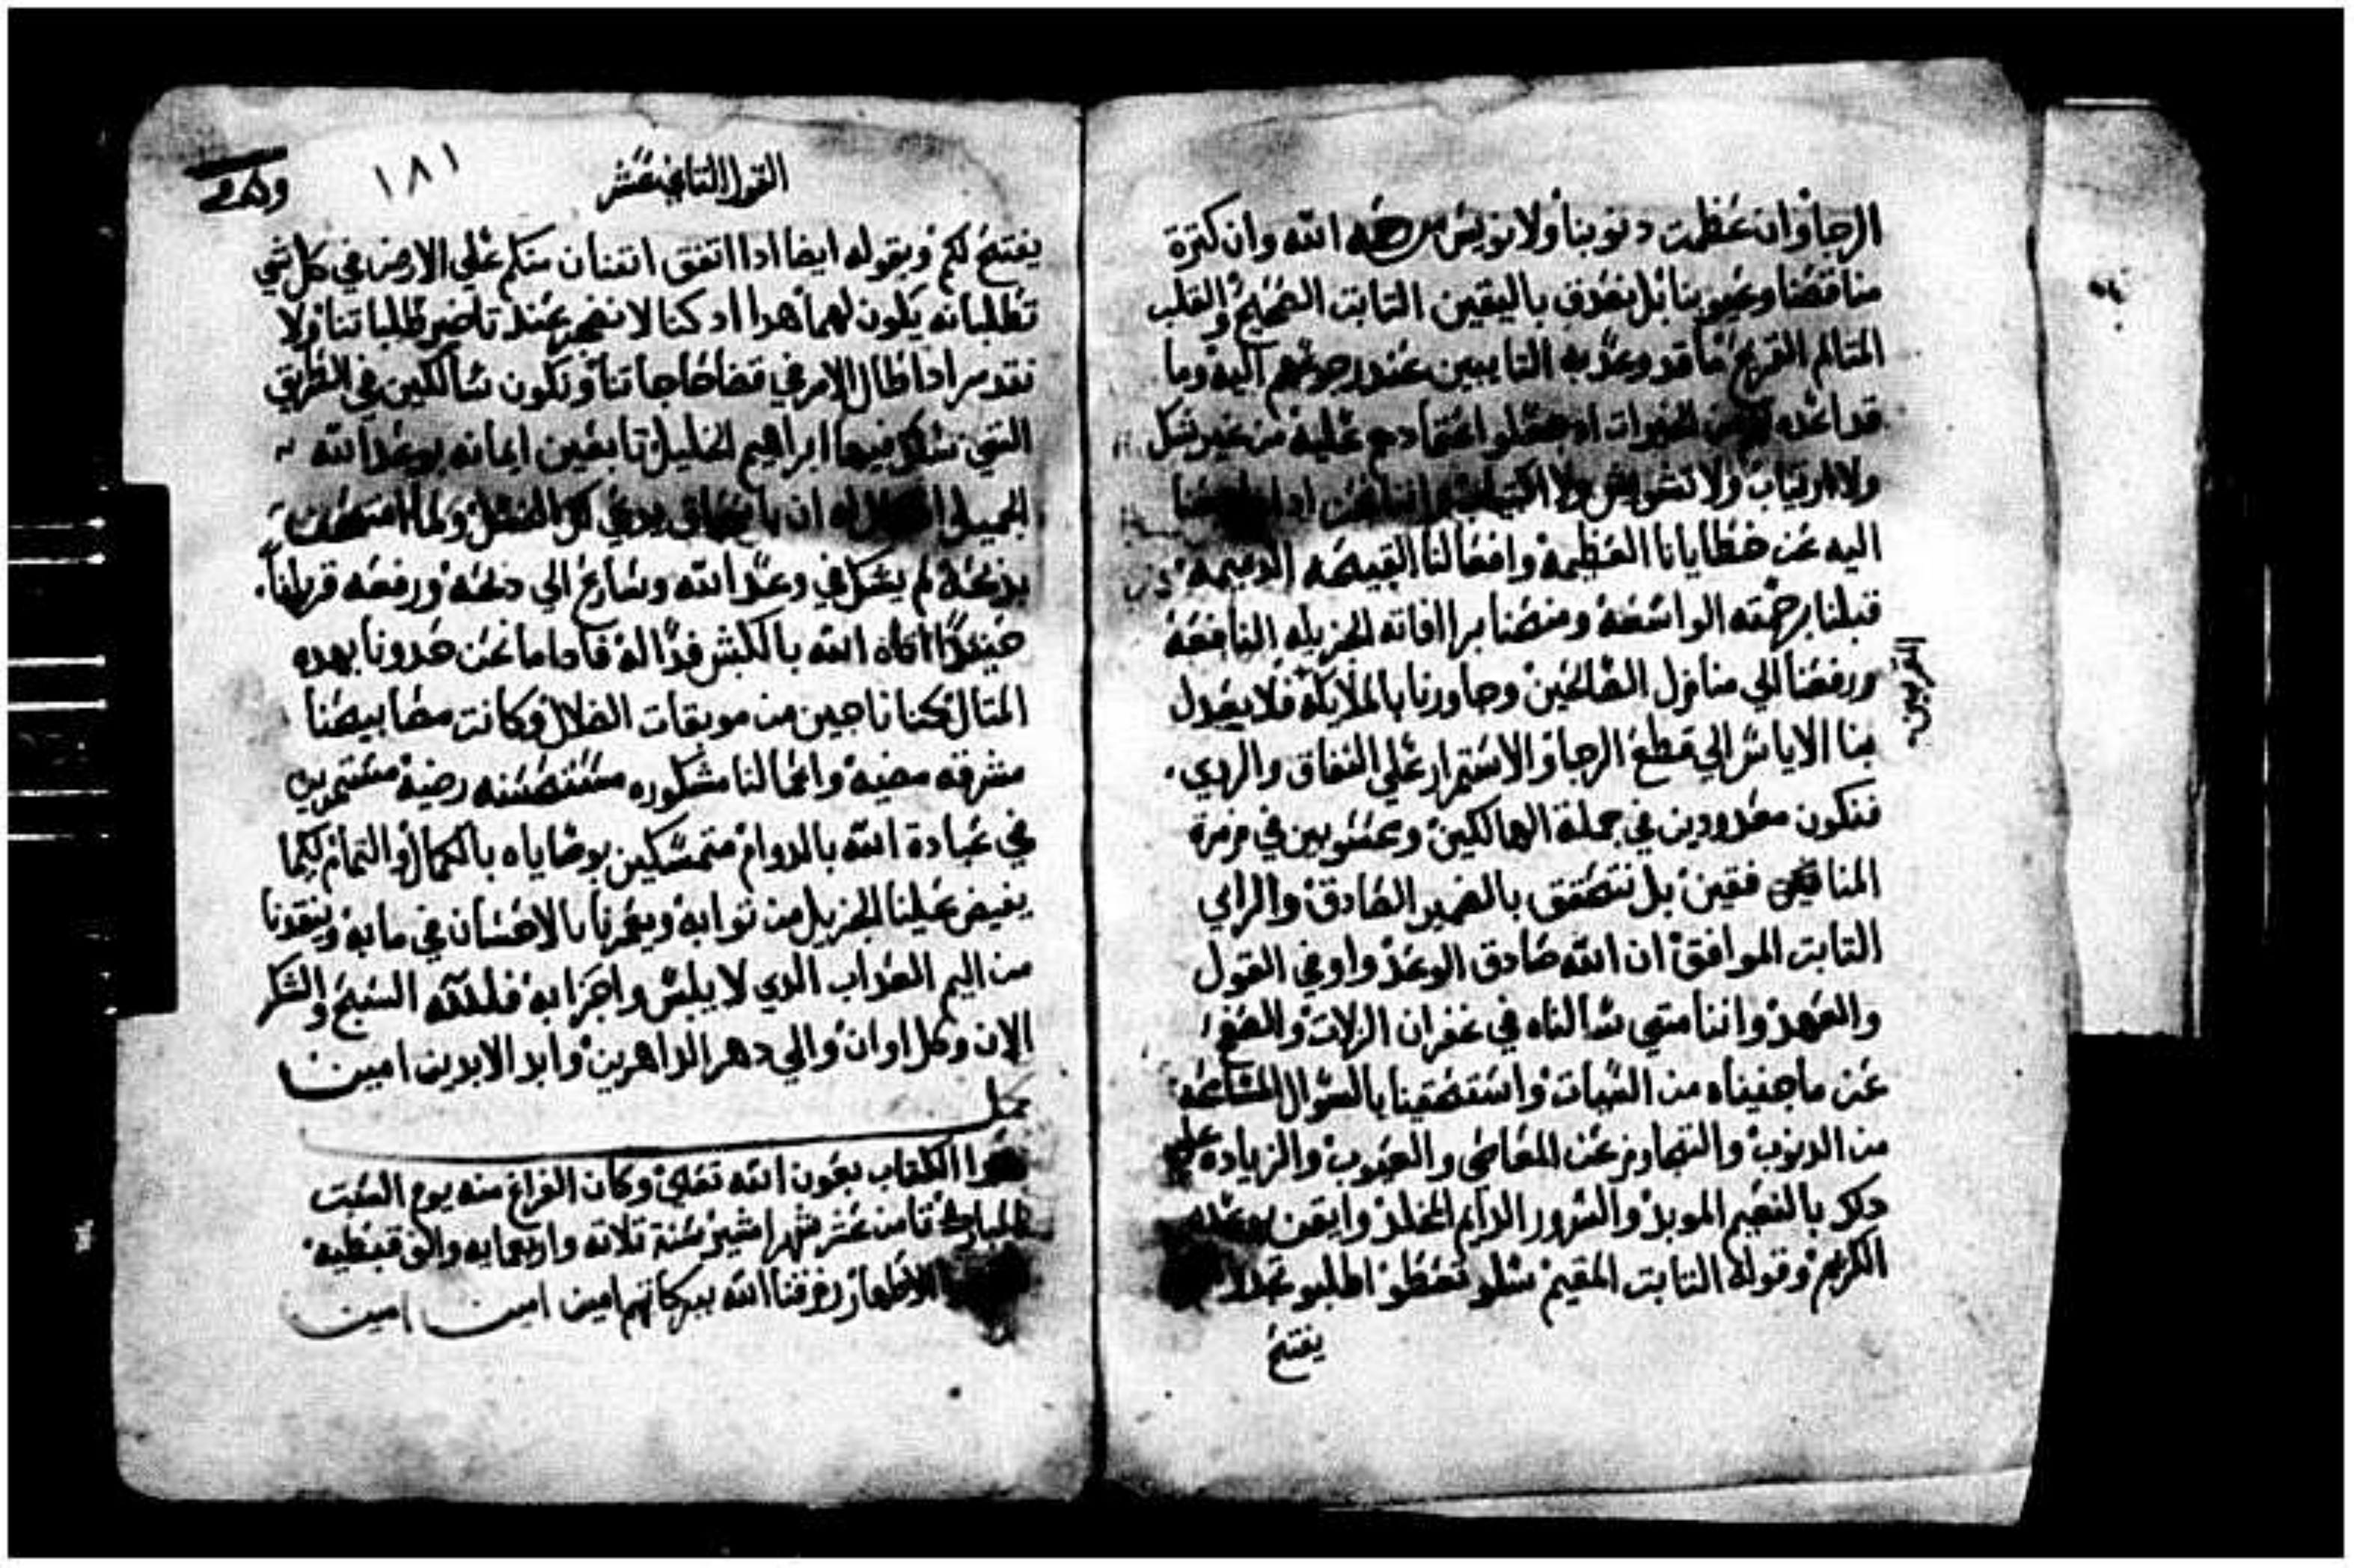 الرجا وان عظمت دنوبنا ولا نويس من الله وان كترة
مناقصنا وعيوبنا بل نصدق باليقين التابت الصحيح والقلب
المتالم القريح ما قد وعد به التايبين عند رجوعهم اليه وما
قد اعده من الخيرات اد جعلو اعتمادهم عليه من غير شك
ولا ارتياب ولا تشويش ولا
اليه عن خطايانا العظيمة وافعالنا القبيحه الدميمة
قبلنا برحمته الواسعة ومنحنا براافاته الجزيله النافعة
ورفعنا الي منازل الصالحين وجاورنا بالملايكة فلا يعدل
المقربين
بنا الاياس الي قطع الرجا والاستمرار علي النفاق والردي
فنكون معدودين في جملة الهالكين ومحسوبين في زمرة
المنافقين بل نتحقق بالضمير الصادق والراي
التابت الموافق ان الله صادق الوعد واوفي القول
والعهد واننا متي سالناه في غفران الزلات والصفح
عن ما جنيناه من السيات واستحقينا بالسوال المسامحه
من الدنوب والتجاوز عن المعاصي والعيوب والزيادة علي
دلك بالنعيم الموبد والسرور الدايم المخلد وايقن بوعده
الكريم وقوله التابت المقيم سلو تعطو اطلبو تجدو
يفتح
القول التاني عشر
١٨١
يفتح لكم وبقوله ايضا ادا اتفق اتنان منكم علي الارض في كل شي
تطلبانه يكون لهما هدا اد كنا لا نضجر عند تاخير طلباتنا ولا
نتدمر ادا طال الامر في قضا حاجاتنا ونكون سالكين في الطريق
التي سلك فيها ابراهيم الخليل تابعين ايمانه بوعد الله
الجميل ان باسحاق يدعي لك النسل ولما امتحن
بدبحه لم يشك في وعد الله وسارع الي دبحه ورفعه قربانا
حينيدا اتاه الله بالكبش فدا له فادا ما نحن حدونا بهده
المتال كنا ناجين من موبقات الضلال وكانت مصابيحنا
مشرقه مضية واعمالنا مشكوره مستحسنه رضية مستمرين
في عبادة الله بالدوام متمسكين بوصاياه بالكمال والتمام لكيما
يفيض علينا الجزيل من توابه ويغمرنا بالاحسان في مابه وينقدنا
من اليم العداب الدي لا يلبس واجزابه فلله السبح والشكر
الان وكل اوان والي دهر الداهرين وابد الابدين امين
كمل
هدا الكتاب بعون الله تعالي وكان الفراغ منه يوم السبت
المبارك تامن عشر شهر امشير سنة تلاته واربعمايه والف قبطيه
الاطهار رزقنا الله ببركاتهم امين امين امين